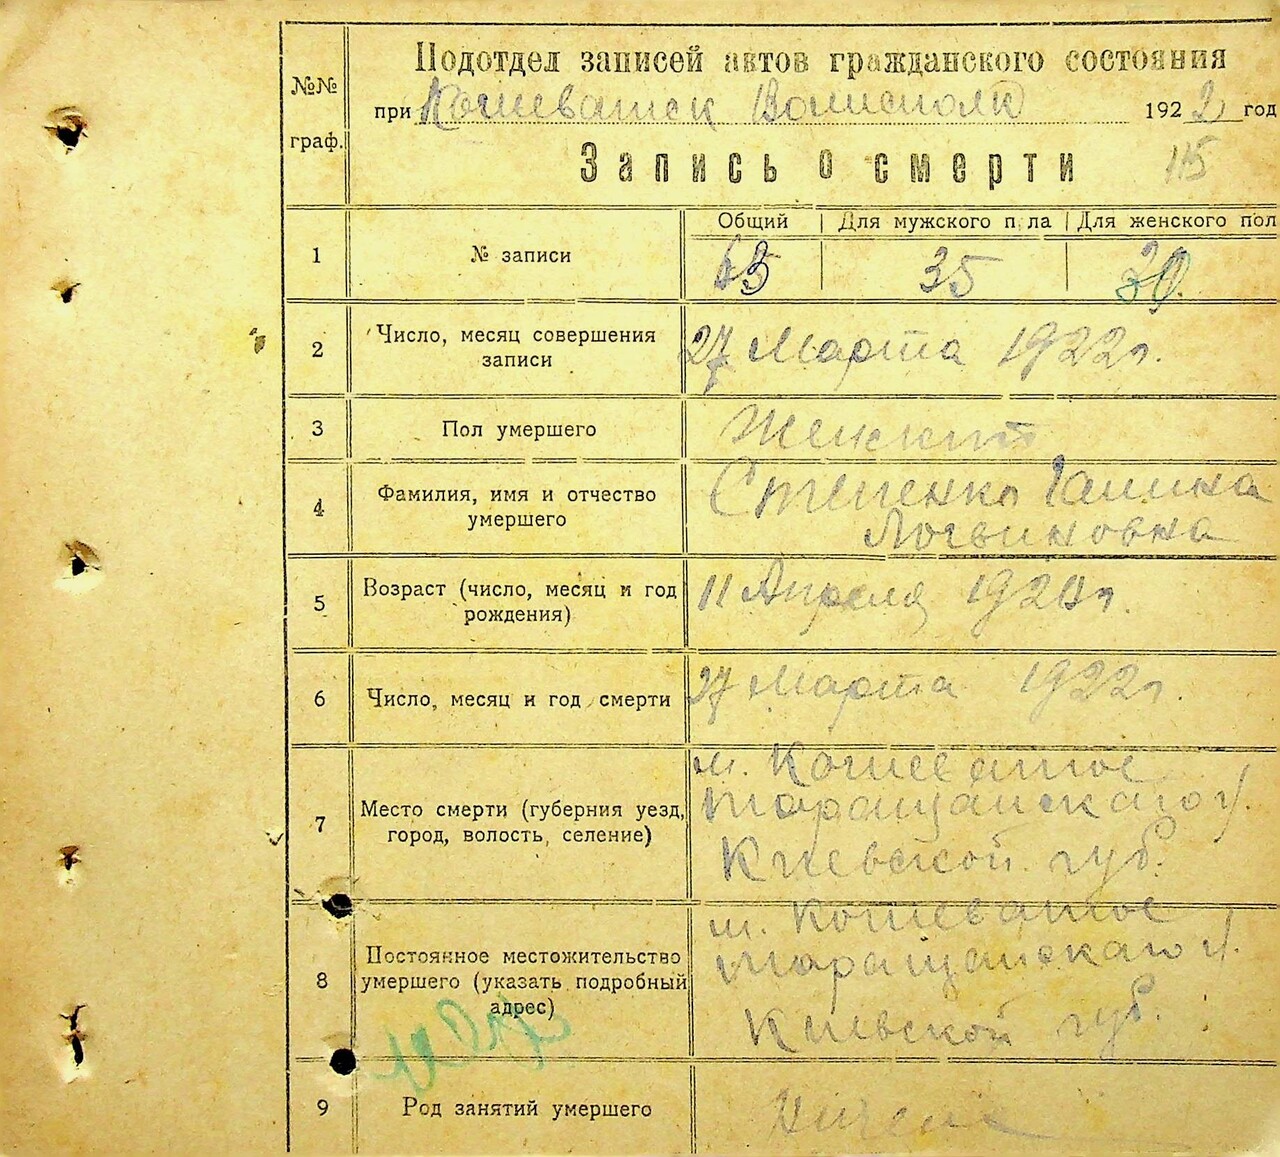 Подотдел записей актов гражданского состояния
№№ граф.
при Кошеватск Волисполк 1922 год
Запись о смерти 115
Общий Для мужского пола Для женского пол
1 № записи 35 30
2 Число, месяц совершения записи 27 Марта 1922 г.
3 Пол умершего Женский
4 Фамилия, имя и отчество умершего Степенко Галина
Логвиновна
5 Возраст (число, месяц и год рождения) 11 Апреля г.
6 Число, месяц и год смерти 27 Марта 1922 г.
7 Место смерти (губерния уезд, город, волость, селение) м. Кошеватое
Таращанскаго у.
Киевской губ.
8 Постоянное местожительство умершего (указать подробный адрес) м. Кошеватое
Таращанскаго у.
Киевской губ.
9 Род занятий умершего